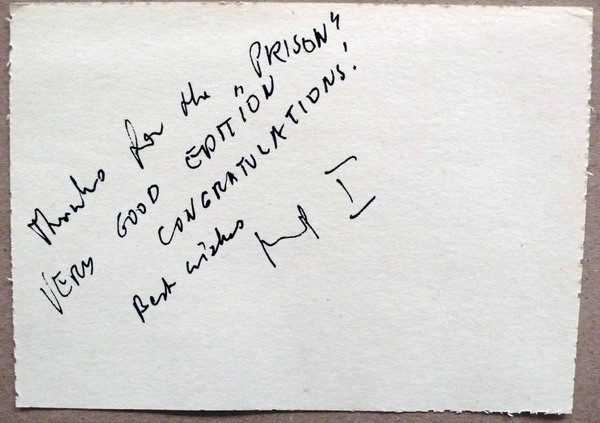 Thanks for the „PRISON“
VERY GOOD EDITION
CONGRATULATIONS!
Best wishes
I